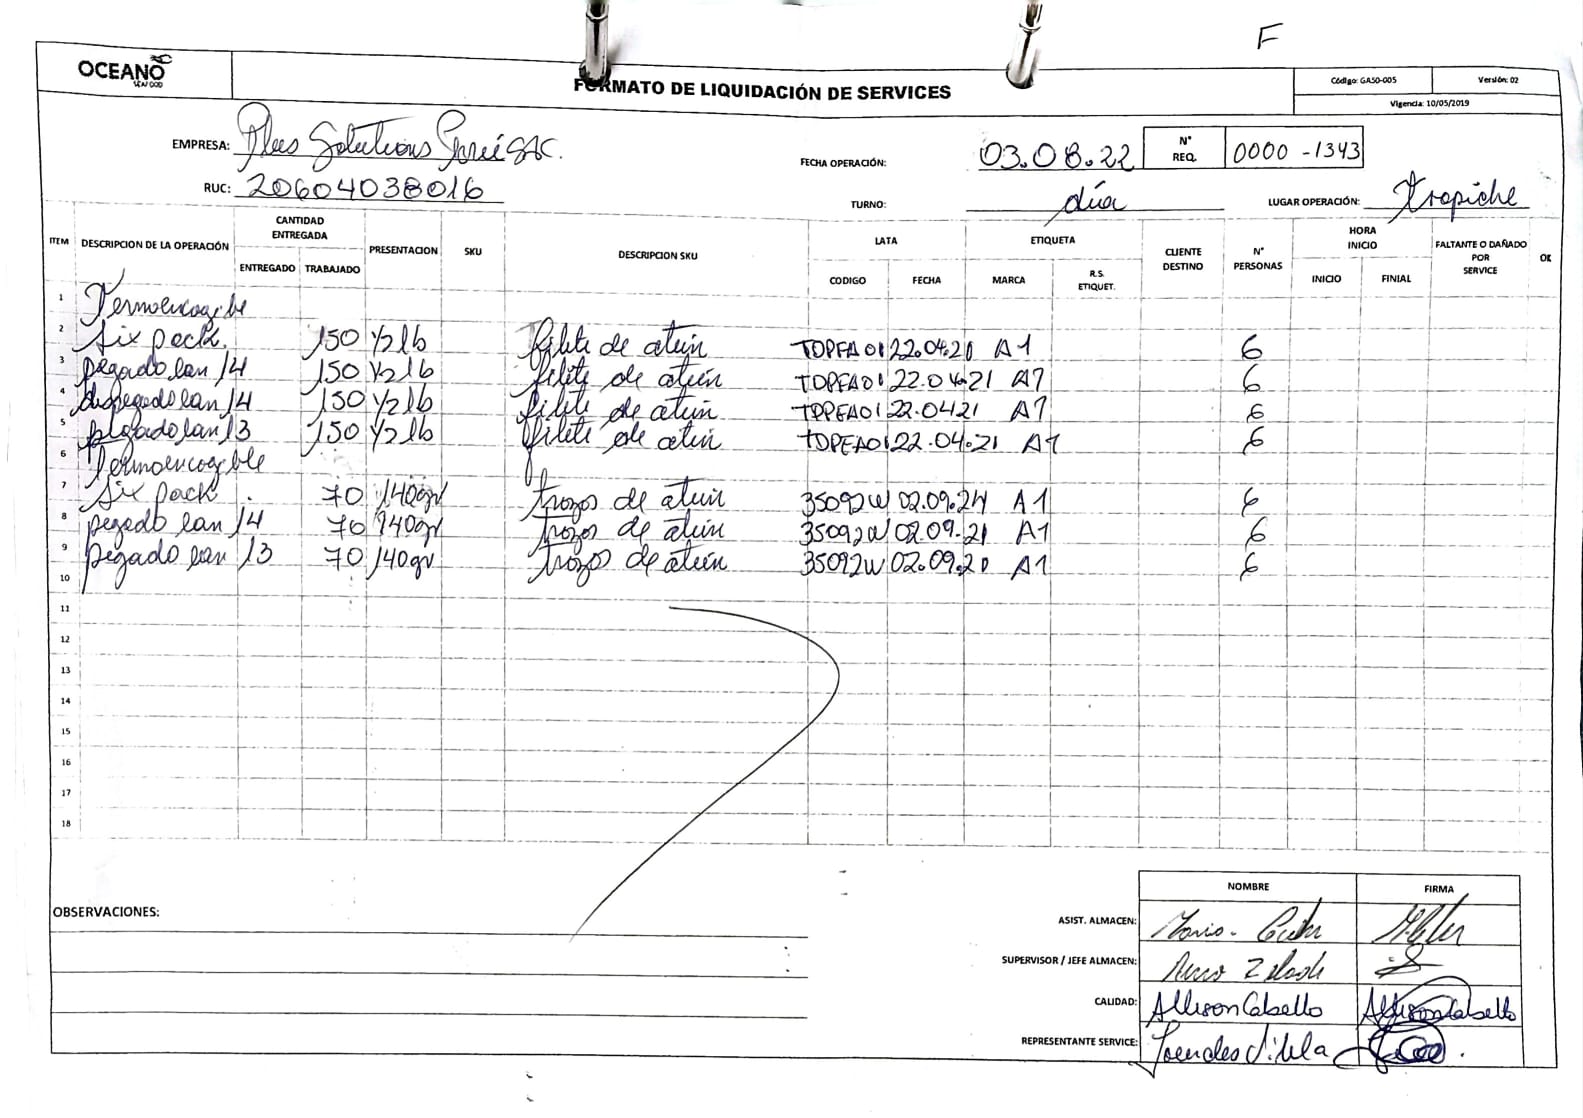 F
OCEANO
SEAFOOD
FORMATO DE LIQUIDACIÓN DE SERVICES
Código: GASO-005
Versión: 02
Vigencia: 10/05/2019
EMPRESA: Plus Solutions Perú SAC.
FECHA OPERACIÓN: 03.08.22
N° REQ. 0000 -1343
RUC: 20604038016
TURNO: día
LUGAR OPERACIÓN: Trapiche
ITEM DESCRIPCION DE LA OPERACIÓN CANTIDAD ENTREGADA PRESENTACION SKU DESCRIPCION SKU LATA ETIQUETA CLIENTE DESTINO N° PERSONAS HORA INICIO FALTANTE O DAÑADO POR SERVICE OK
ENTREGADO TRABAJADO CODIGO FECHA MARCA R.S. ETIQUET. INICIO FINIAL
1 Termoencogible
2 Six pack. 150 1/2 lb filete de atún TOPFA01 22.04.21 A1 6
3 pegado lan 14 150 1/2 lb filete de atún TOPFA01 22.04.21 A1 6
4 despegado lan 14 150 1/2 lb filete de atún TOPFA01 22.0421 A1 6
5 pegado lan 13 150 1/2 lb filete de atún TOPFA01 22.04.21 A1 6
6 Termoencogible
7 Six pack. 70 140gr trozos de atún 35092W 02.09.21 A1 6
8 pegado lan 14 70 140gr trozos de atún 35092W 02.09.21 A1 6
9 pegado lan 13 70 140gr trozos de atún 35092W 02.09.21 A1 6
10
11
12
13
14
15
16
17
18
NOMBRE FIRMA
OBSERVACIONES:
ASIST. ALMACEN: Mario
SUPERVISOR / JEFE ALMACEN:
CALIDAD: Allison Cabello Allison Cabello
REPRESENTANTE SERVICE: Lourdes Vilela